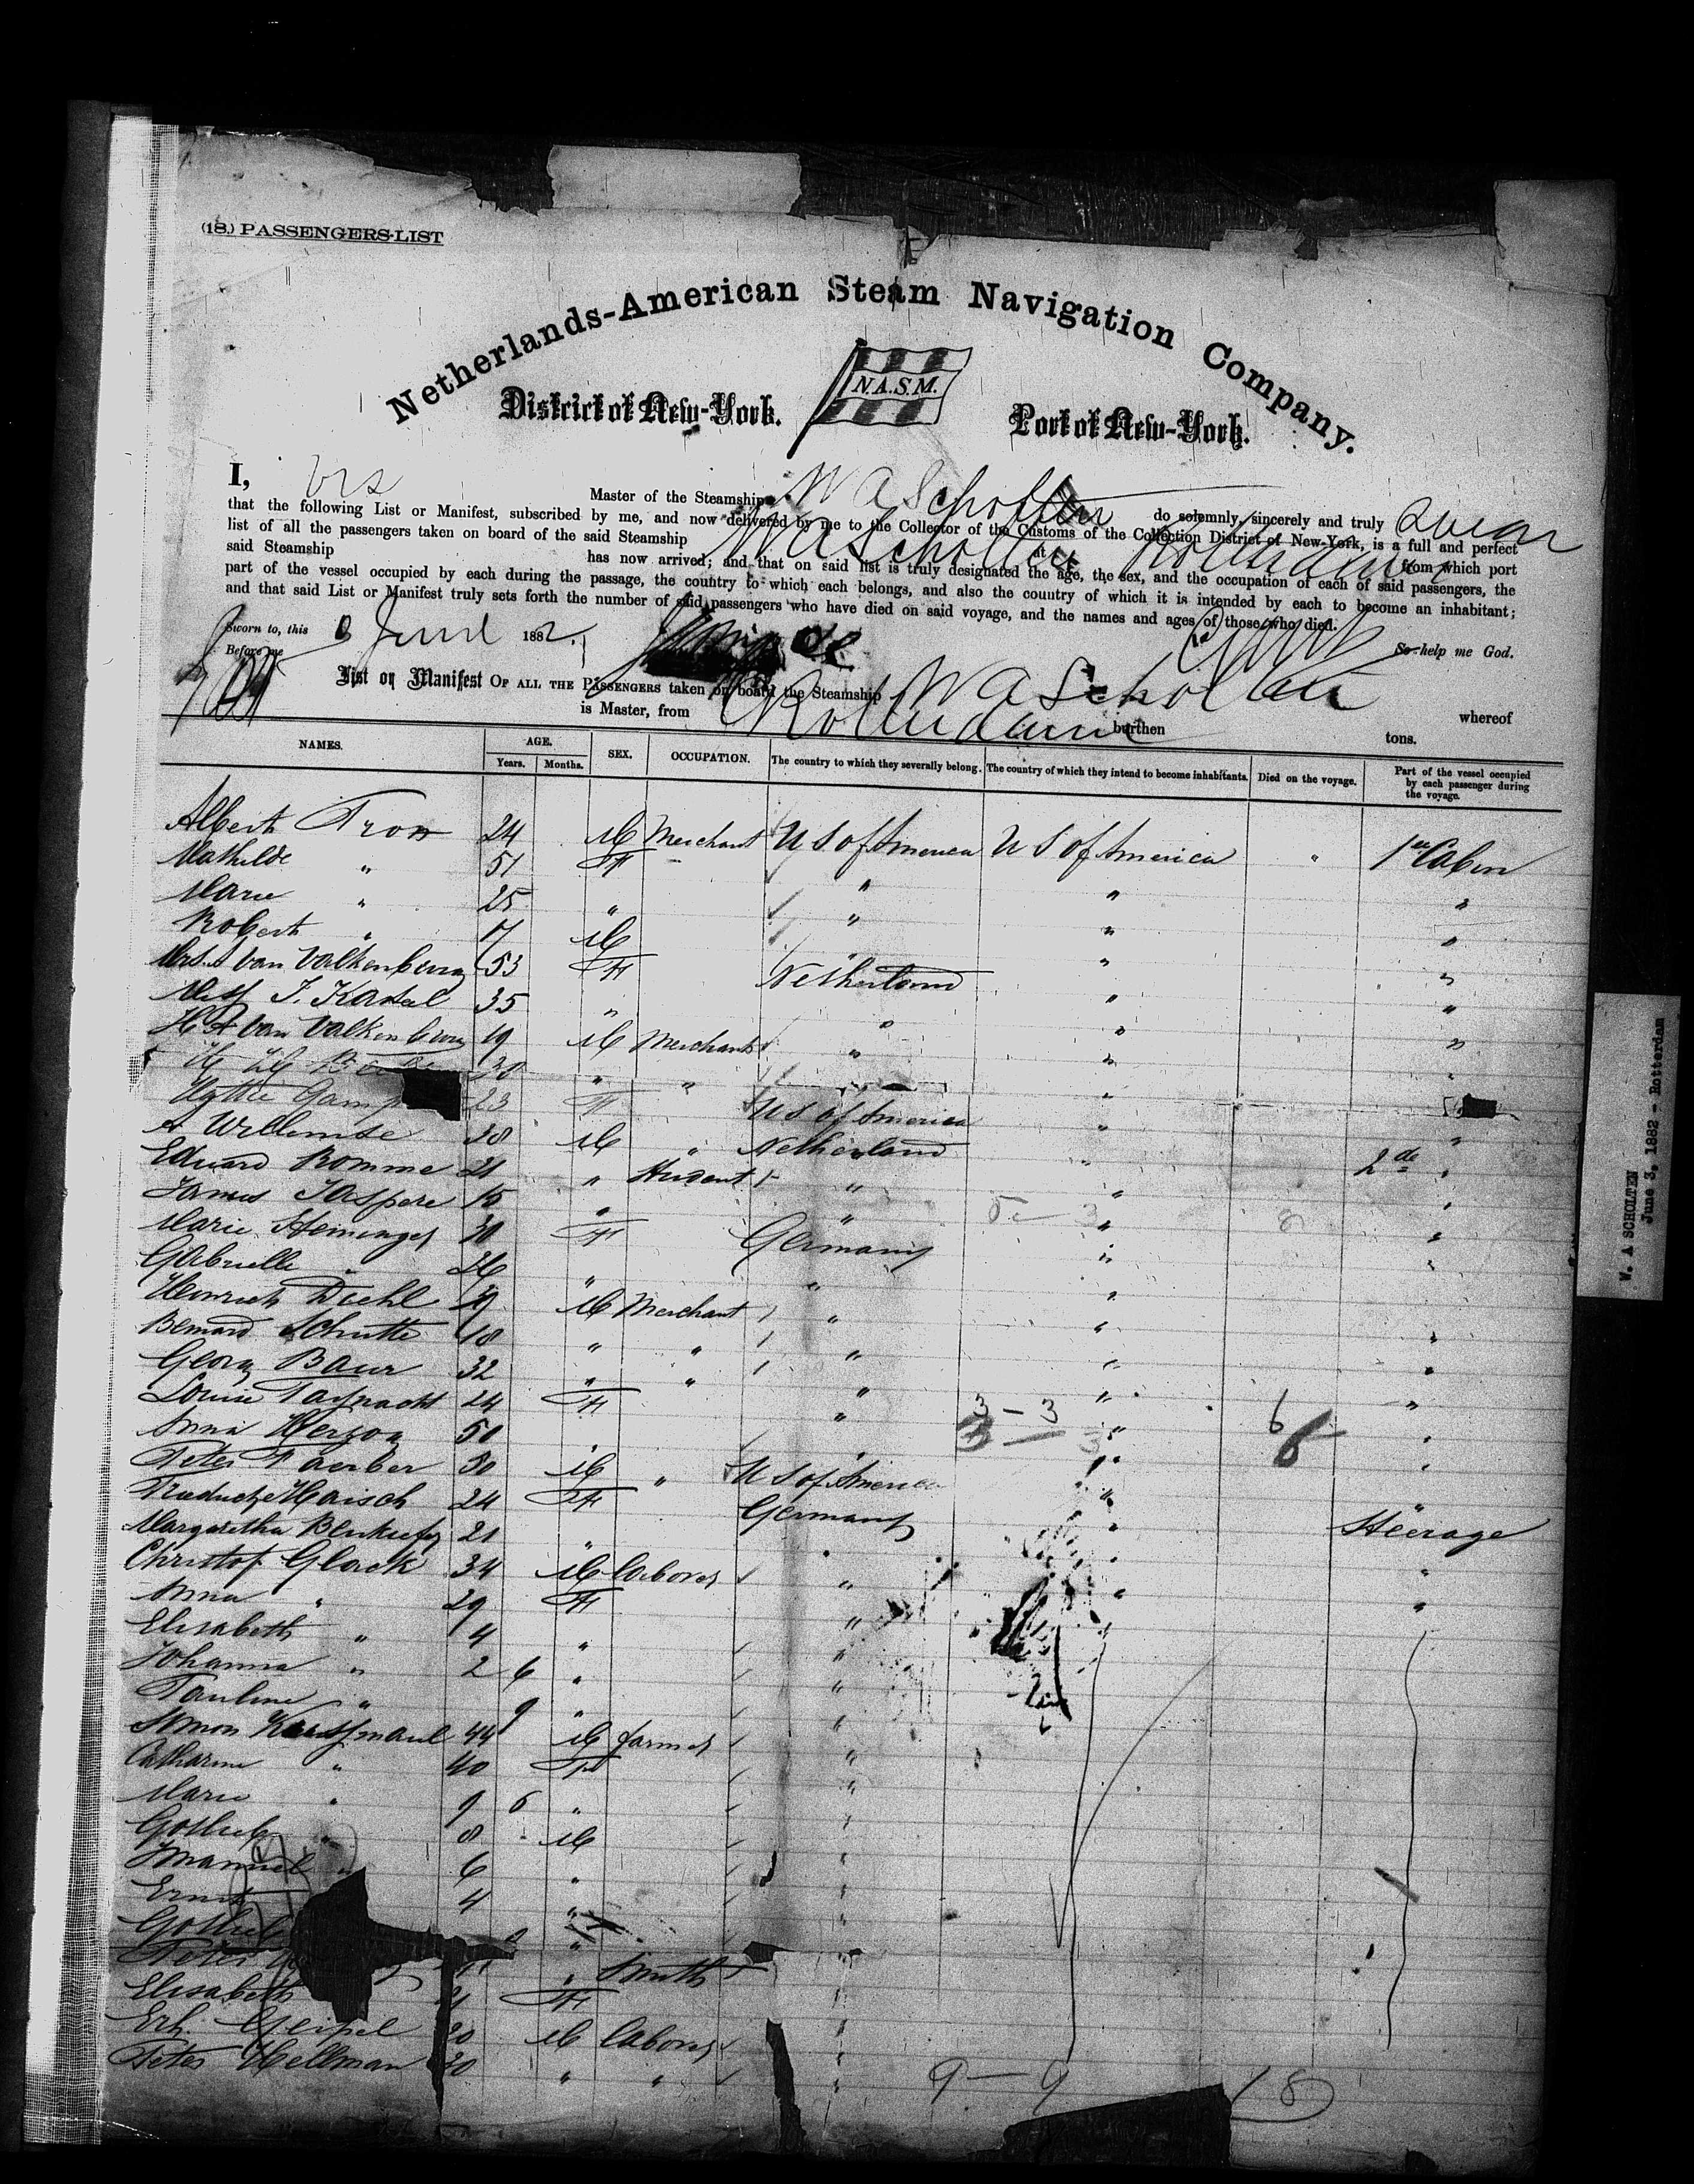 (18.) PASSENGERS-LIST
Netherlands-American Steam Navigation Company.
N.A.S.M.
District of New-York. Port of New-York.
I, Vis Master of the Steamship W A Scholten do solemnly, sincerely and truly Swear
that the following List or Manifest, subscribed by me, and now delivered by me to the Collector of the Customs of the Collection District of New-York, is a full and perfect
list of all the passengers taken on board of the said Steamship W A Scholten at Rotterdam from which port
said Steamship has now arrived; and that on said list is truly designated the age, the sex, and the occupation of each of said passengers, the
part of the vessel occupied by each during the passage, the country to which each belongs, and also the country of which it is intended by each to become an inhabitant;
and that said List or Manifest truly sets forth the number of said passengers who have died on said voyage, and the names and ages of those who died.
Sworn to, this 3 June 1882. So help me God.
Before me
List or Manifest OF ALL THE PASSENGERS taken on board the Steamship W A Scholten whereof
is Master, from Rotterdam burthen tons.
NAMES. AGE. Years. Months. SEX. OCCUPATION. The country to which they severally belong. The country of which they intend to become inhabitants. Died on the voyage. Part of the vessel occupied by each passenger during the voyage.
Albert 24 M Merchant U S of America U S of America " 1st Cabin
Mathilde " 51 F " " "
Marie " 25 " " " "
Robert " 7 M " " "
Mrs. A van Valkenburg 53 F Netherland " "
Miss J. 35 " " " "
H A van Valkenburg 19 M Merchant " " "
30 " " "
23 F U S of America "
A Willemse 38 M " Netherland " "
Eduard Romme 21 " Student " " 2de "
James Jaspere 15 " " " "
Marie 30 F Germany " "
Gabrielle " 26 " " " "
Heinrich Diehl 39 M Merchant " " "
Bernard Schutte 18 " " " " "
Georg Baur 32 " " " " "
Louise 24 F " " "
3 - 3 6
Anna Herzog 50 " " " "
Peter Faerber 30 M " U S of America " "
Haisch 24 F Germany " Steerage
Margaretha 21 " " " "
Christof Glock 34 M laborer " " "
Anna " 29 F " "
Elisabeth " 4 " "
Johanna " 2 6 " "
Pauline " 9 " "
Simon 44 M farmer "
Catharine " 40 F "
Marie " 9 6 " "
Gottlieb " 8 M "
Imanuel " 6 " "
Ernst 4 " "
Gottlieb " "
Peter " Smith "
Elisabeth F "
Erh. Geipel 20 M laborer "
Peter Hellman 30 " " "
9 - 9 18
W. A SCHOLTEN
June 3, 1882 - Rotterdam